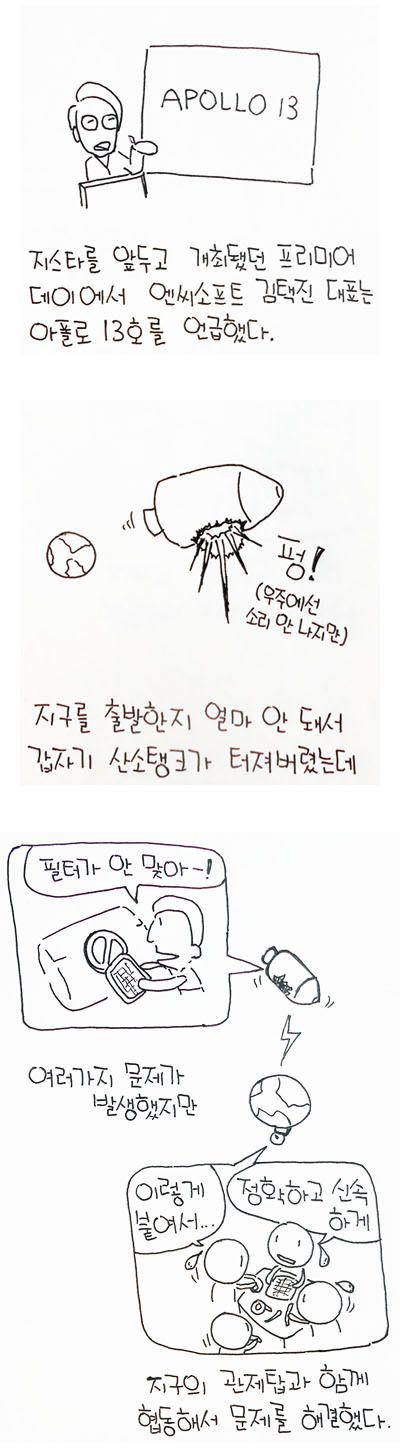 APOLLO 13
지스타를 앞두고 개최됐던 프리미어
데이에서 엔씨소프트 김택진 대표는
아폴로 13호를 언급했다.
펑!
(우주에선
소리 안 나지만)
지구를 출발한지 얼마 안 돼서
갑자기 산소탱크가 터져버렸는데
필터가 안 맞아-!
여러가지 문제가
발생했지만
이렇게
붙여서...
정확하고 신속
하게
지구의 관제탑과 함께
협동해서 문제를 해결했다.